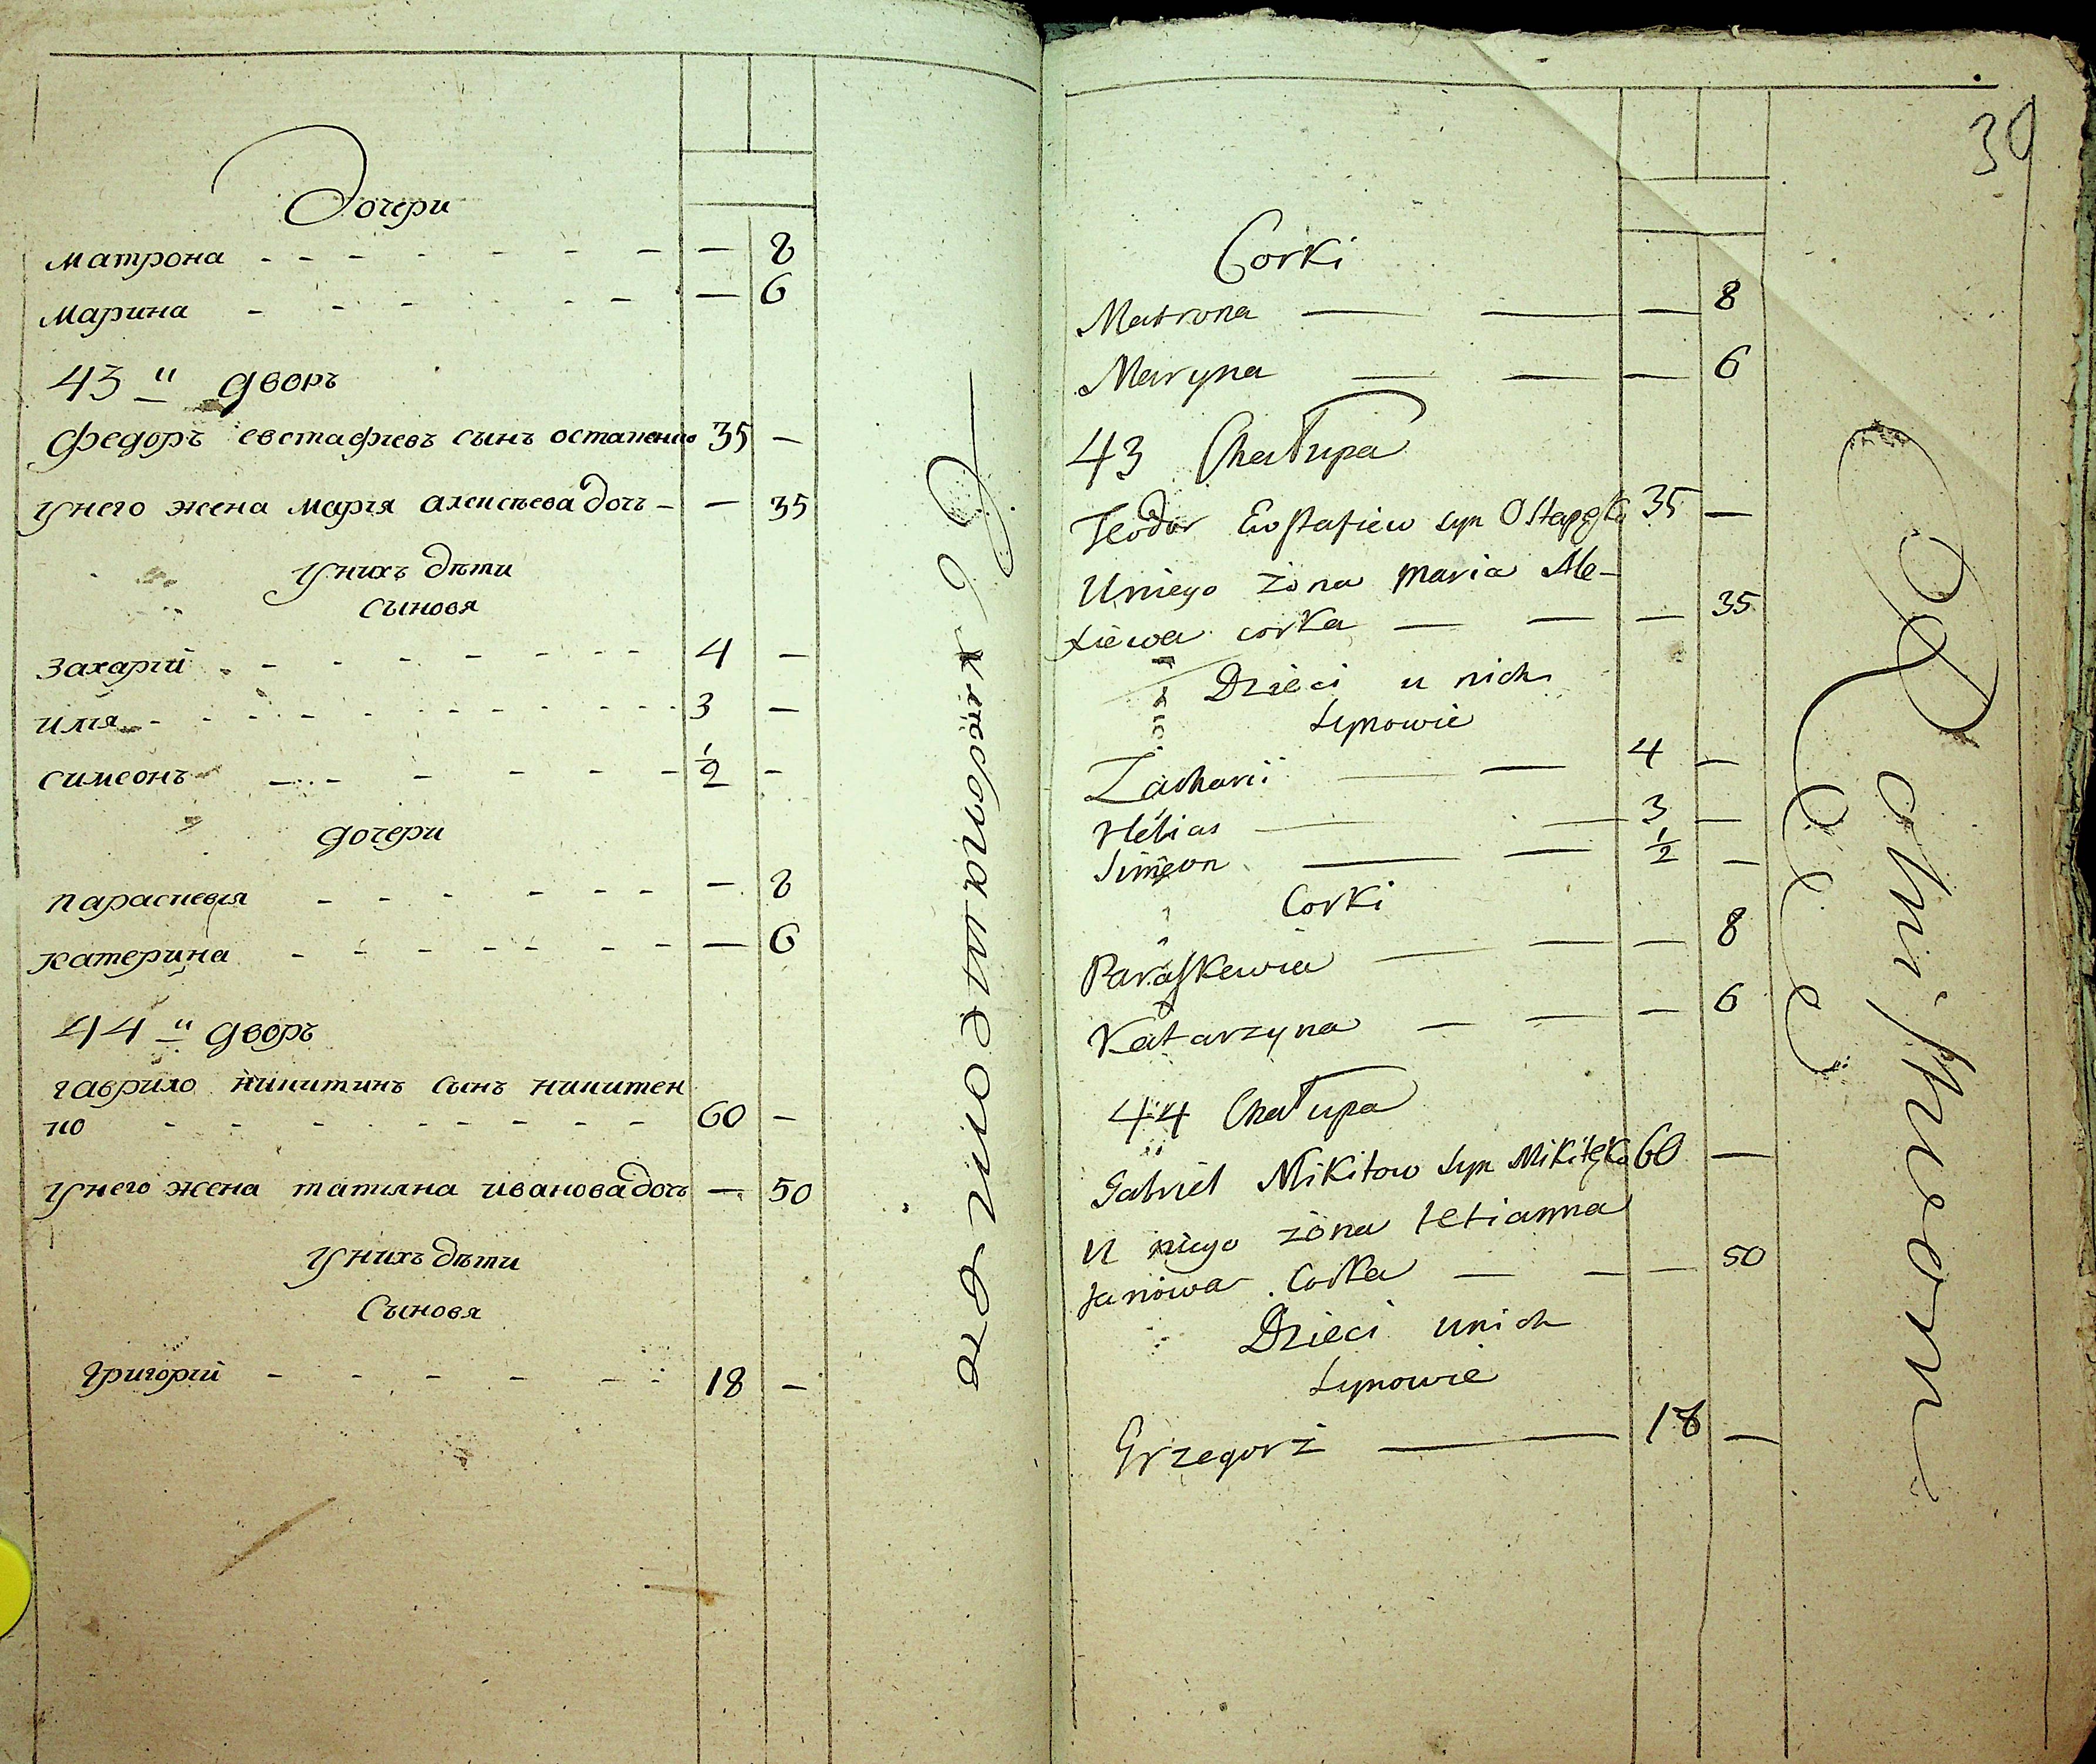 Дочери
Матрона - - - - - - - — 8
Марина - - - - - - — 6
43 й дворъ
Федоръ евстафиевъ сынъ остапенко 35 —
У него жена Марія алексѣева дочь - — 35
У нихъ дѣти
Сыновя
Захарій - - - - - - - - 4 —
Илія - - - - - - - - - - - 3 —
Симеонъ - - - - - - - 1/2 -
дочери
Параскевія - - - - - - - — 8
Катерина - - - - - - - — 6
44 й дворъ
Гаврило никитинъ сынъ никитен
ко - - - - - - - - - 60 —
У него жена татіяна иванова дочь — 50
У нихъ дѣти
Сыновя
Григорій - - - - - - 18 —
30
Corki
Matrona — — — 8
Maryna — — — 6
43 Chałupa
Teodor Eustafiew syn Ostapęko 35 —
U niego żona Maria Ale-
xiewa corka — — — 35
Dzieci u nich
synowie
Zacharii — — 4 —
Helias — — 3 —
Simeon — — 1/2 —
Corki
Paraskewia — — — 8
Katarzyna — — — 6
44 Chałupa
Gabriel Nikitow syn Mikitęko 60 —
U niego żona tetianna
Janowa Corka — — — 50
Dzieci u nich
synowie
Grzegorz — — 18 —